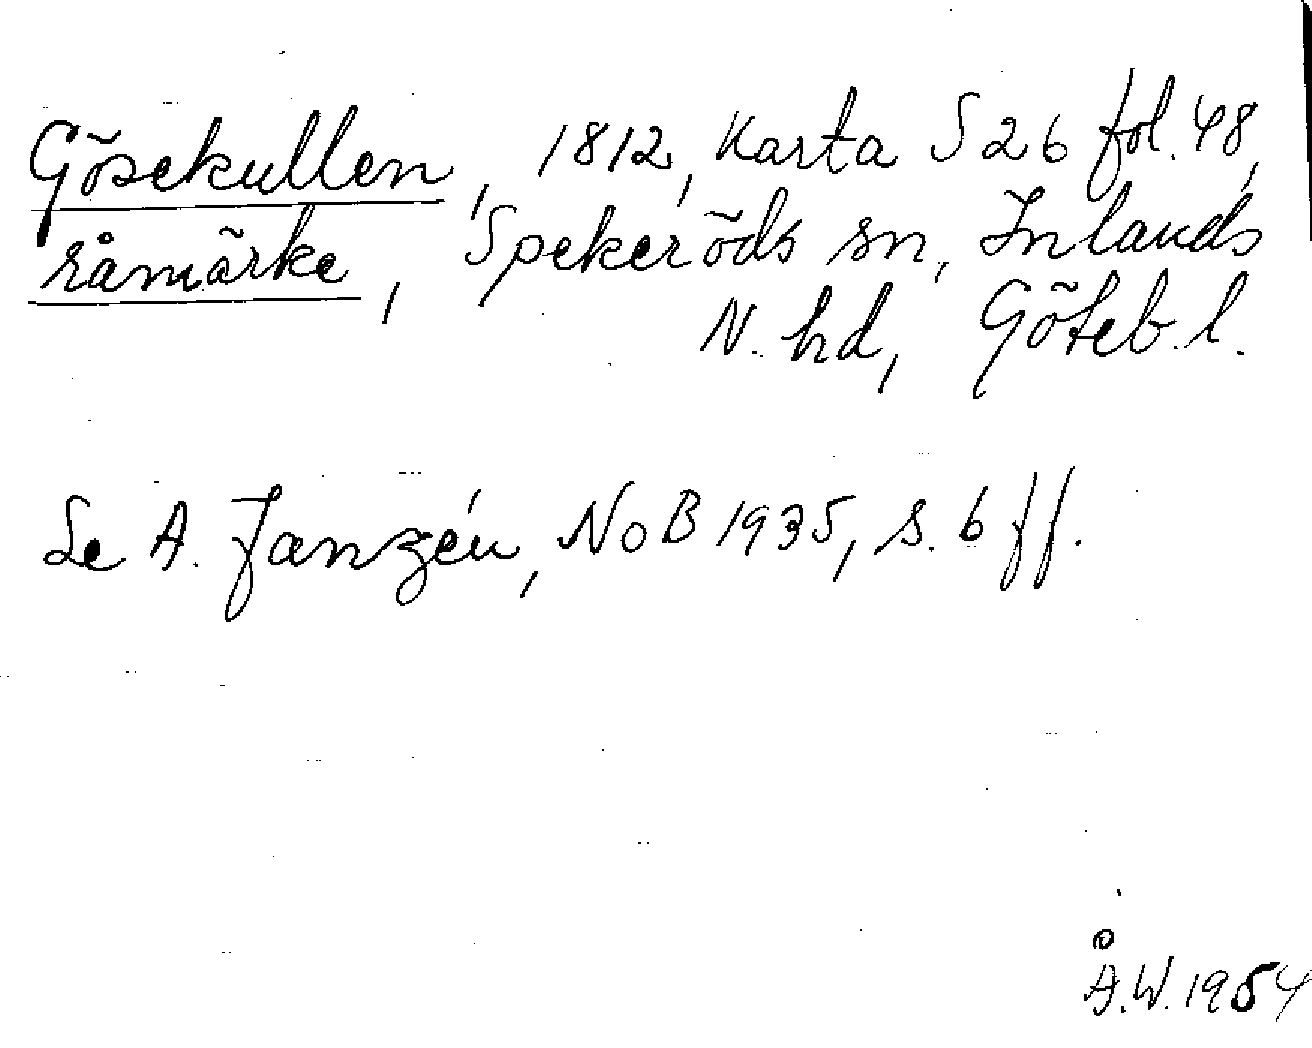 Gösekullen, 1812, Karta S 26 fol. 48,
råmärke, Spekeröds sn, Inlands
N. hd, Göteb. l.
Se A. Janzén, NoB 1935, s. 6 ff.
Å.W. 1954